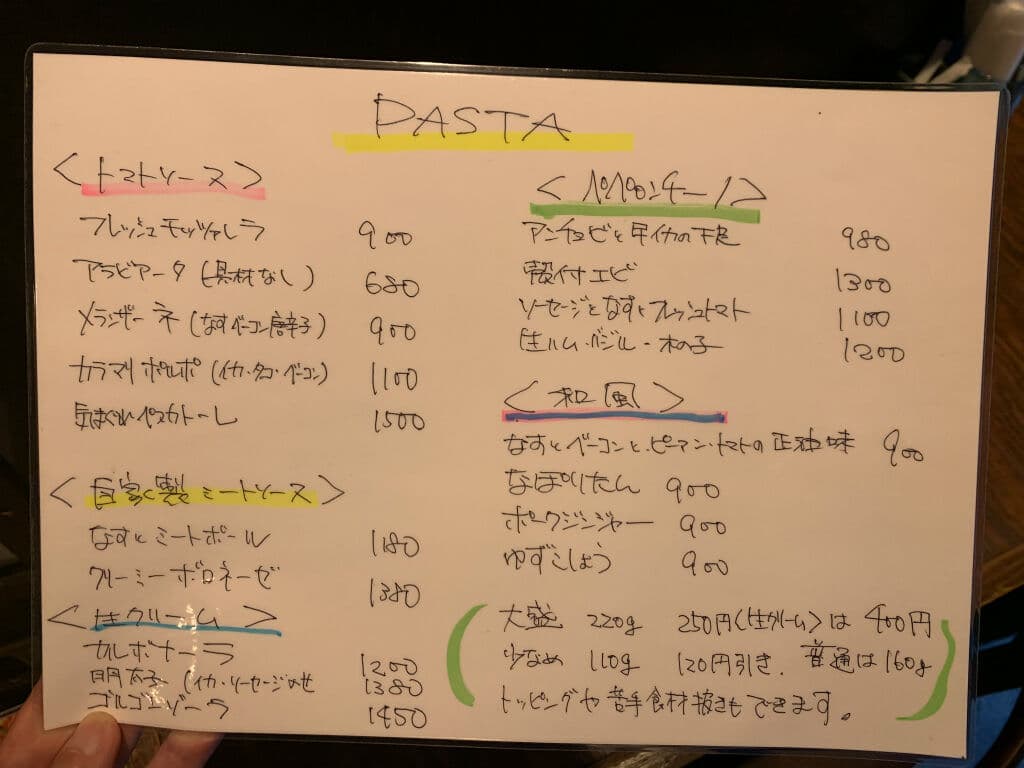 PASTA
<トマトソース>
フレッシュモッツァレラ 900
アラビアータ(具材なし) 680
メランザーネ(なすベーコン唐辛子) 900
カラマリポルポ(イカ・タコ・ベーコン) 1100
気まぐれペスカトーレ 1500
<自家製ミートソース>
なすとミートボール 1180
クリーミーボロネーゼ 1380
<生クリーム>
カルボナーラ 1200
明太子(イカ・ソーセージのせ 1380
ゴルゴンゾーラ 1450
<ペペロンチーノ>
アンチョビと 980
殻付エビ 1300
ソーセージとなすとフレッシュトマト 1100
生ハム・バジル・木の子 1200
<和風>
なすとベーコンとピーマン・トマトの 味 900
なぽりたん 900
ポークジンジャー 900
ゆずこしょう 900
大盛 220g 250円<生クリーム>は400円
少なめ 110g 120円引き. 普通は160g
トッピングや苦手食材抜きもできます。